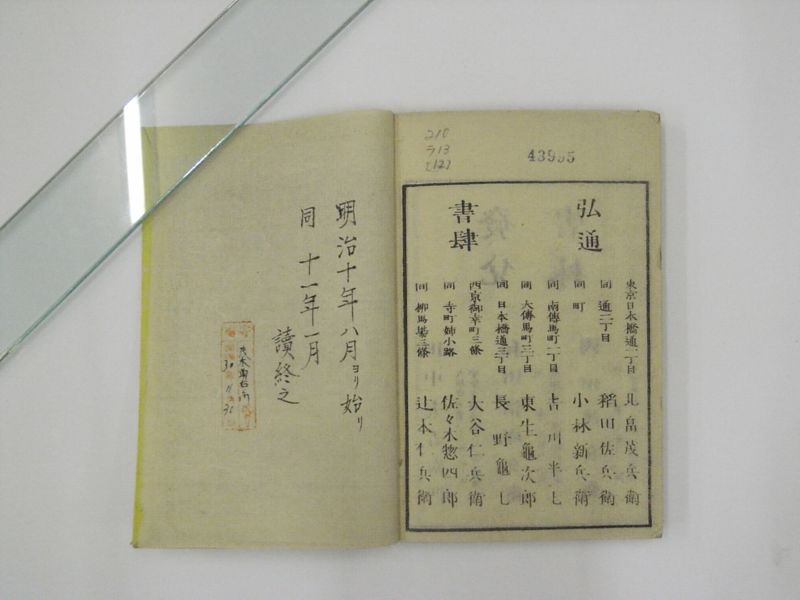 210
ラ13
(12)
43995
弘通
書肆
東京日本橋通一丁目 北畠茂兵衛
同 通二丁目 稻田佐兵衛
同 町 小林新兵衛
同 南傳馬町一丁目 吉川半七
同 大傳馬町三丁目 東生龜次郎
同 日本橋通三丁目 長野龜七
西京御幸町三條 大谷仁兵衛
同 寺町姉小路 佐々木惣四郎
同 柳馬場三條 辻本仁兵衛
明治十年八月ヨリ始リ
同 十一年一月
讀終之